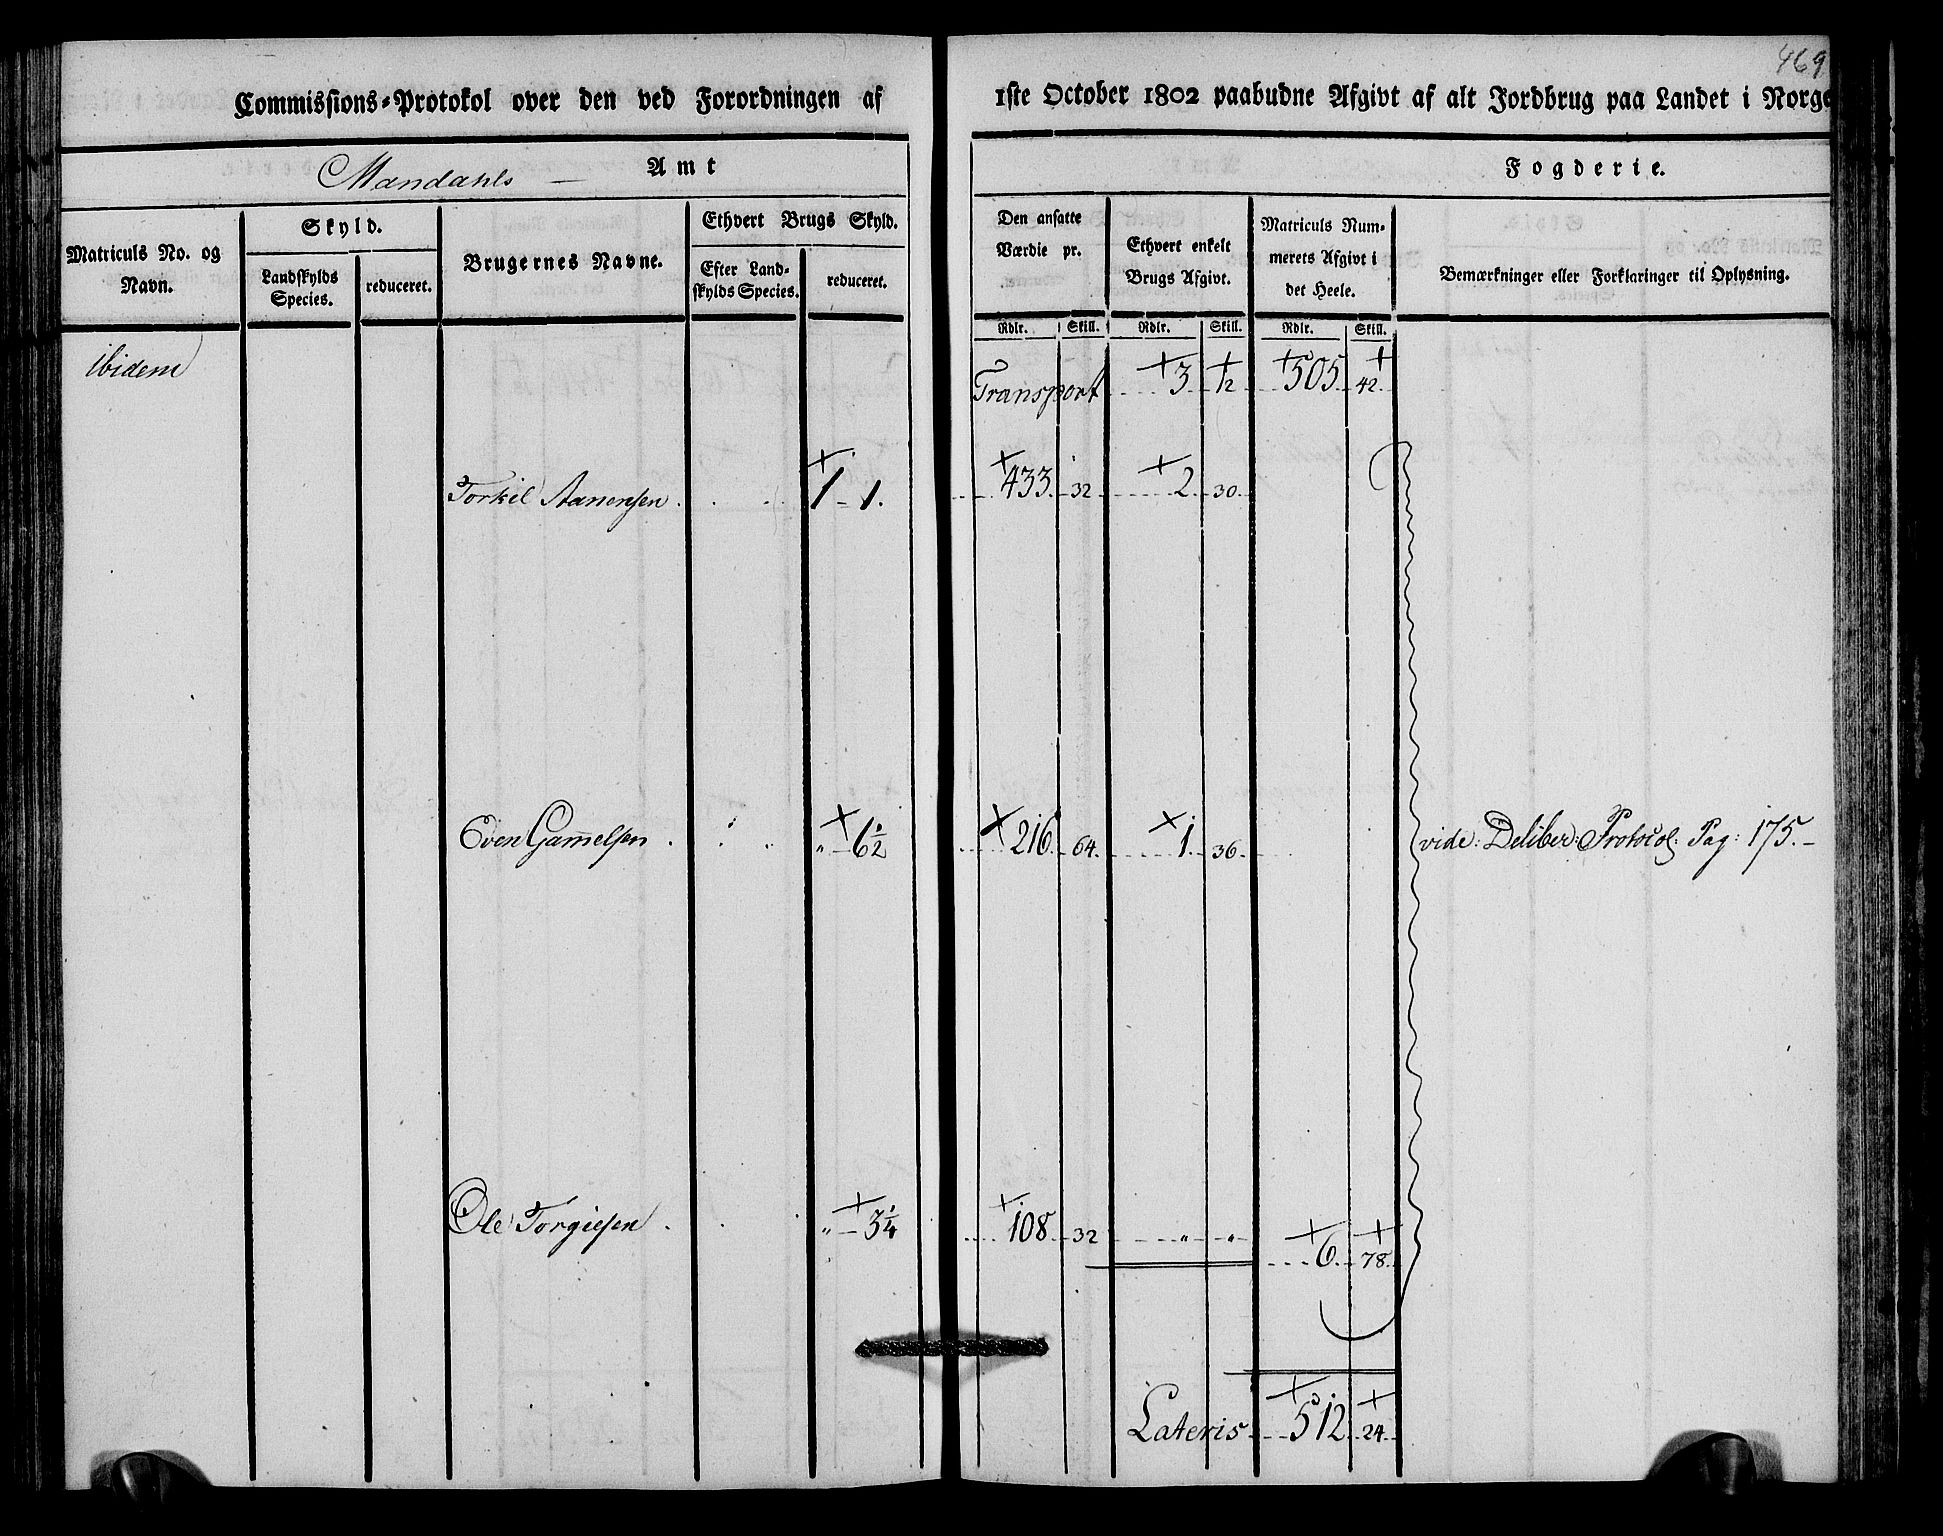 469
Commissions-Protokol over den ved Forordningen af 1ste October 1802 paabudne Afgivt af alt Jordbrug paa Landet i Norge
Mandahls — Amt
Fogderie.
Matriculs No. og Navn.
Skyld.
Landskylds Species.
reduceret.
Brugernes Navne.
Ethvert Brugs Skyld.
Efter Landskylds Species.
reduceret.
Den ansatte Værdie pr.
Ethvert enkelt Brugs Afgivt.
Matriculs Nummerets Afgivt i det Heele.
Bemærkninger eller Forklaringer til Oplysning.
Rdlr. Skill. Rdlr. Skill. Rdlr. Skill.
ibidem Transport 3 12 505 42
Torkel Aanensen 1 - 1. 433 32 2 30
Even Gam̅elsen " - 6½ 216 64 1 36 vide: Deliber: Protocol. Pag: 175.-
Ole Torgiesen " - 3¼ 108 32 " " 6 78
Lateris 512 24